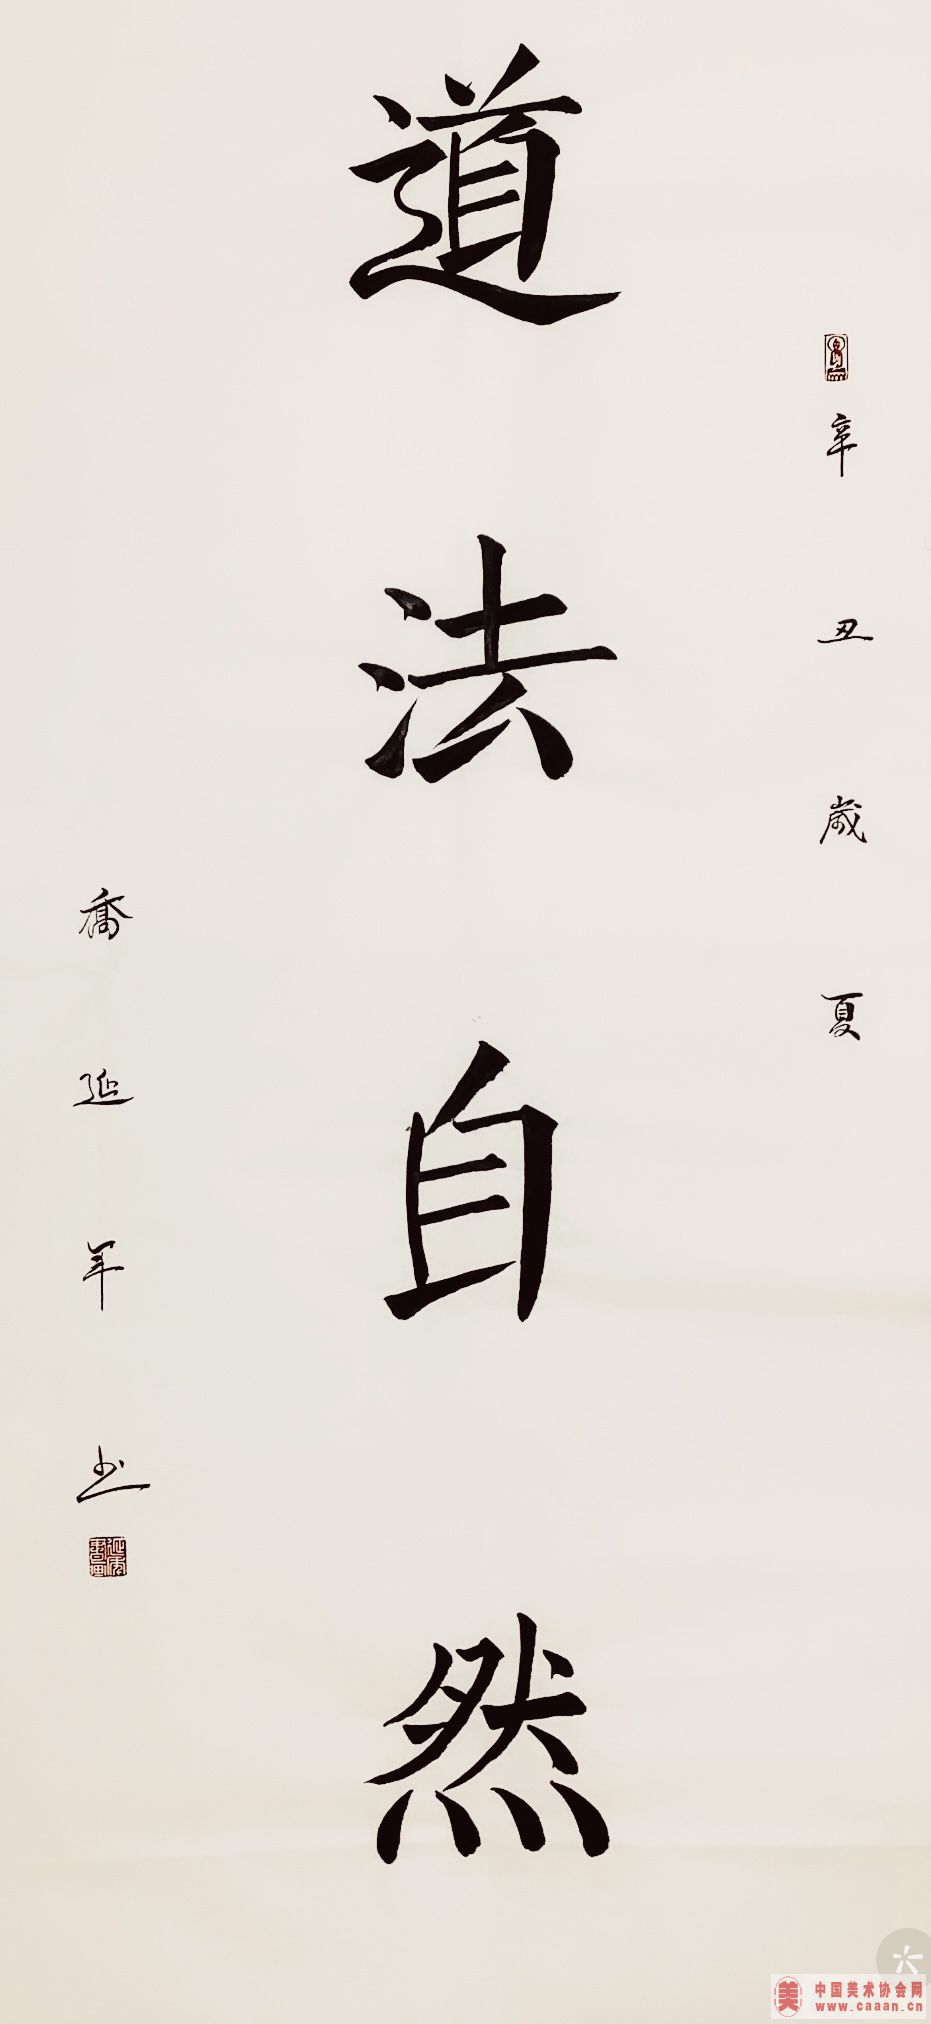 辛丑歲夏
道法自然
喬延年书
中国美术协会网
www.caaan.cn